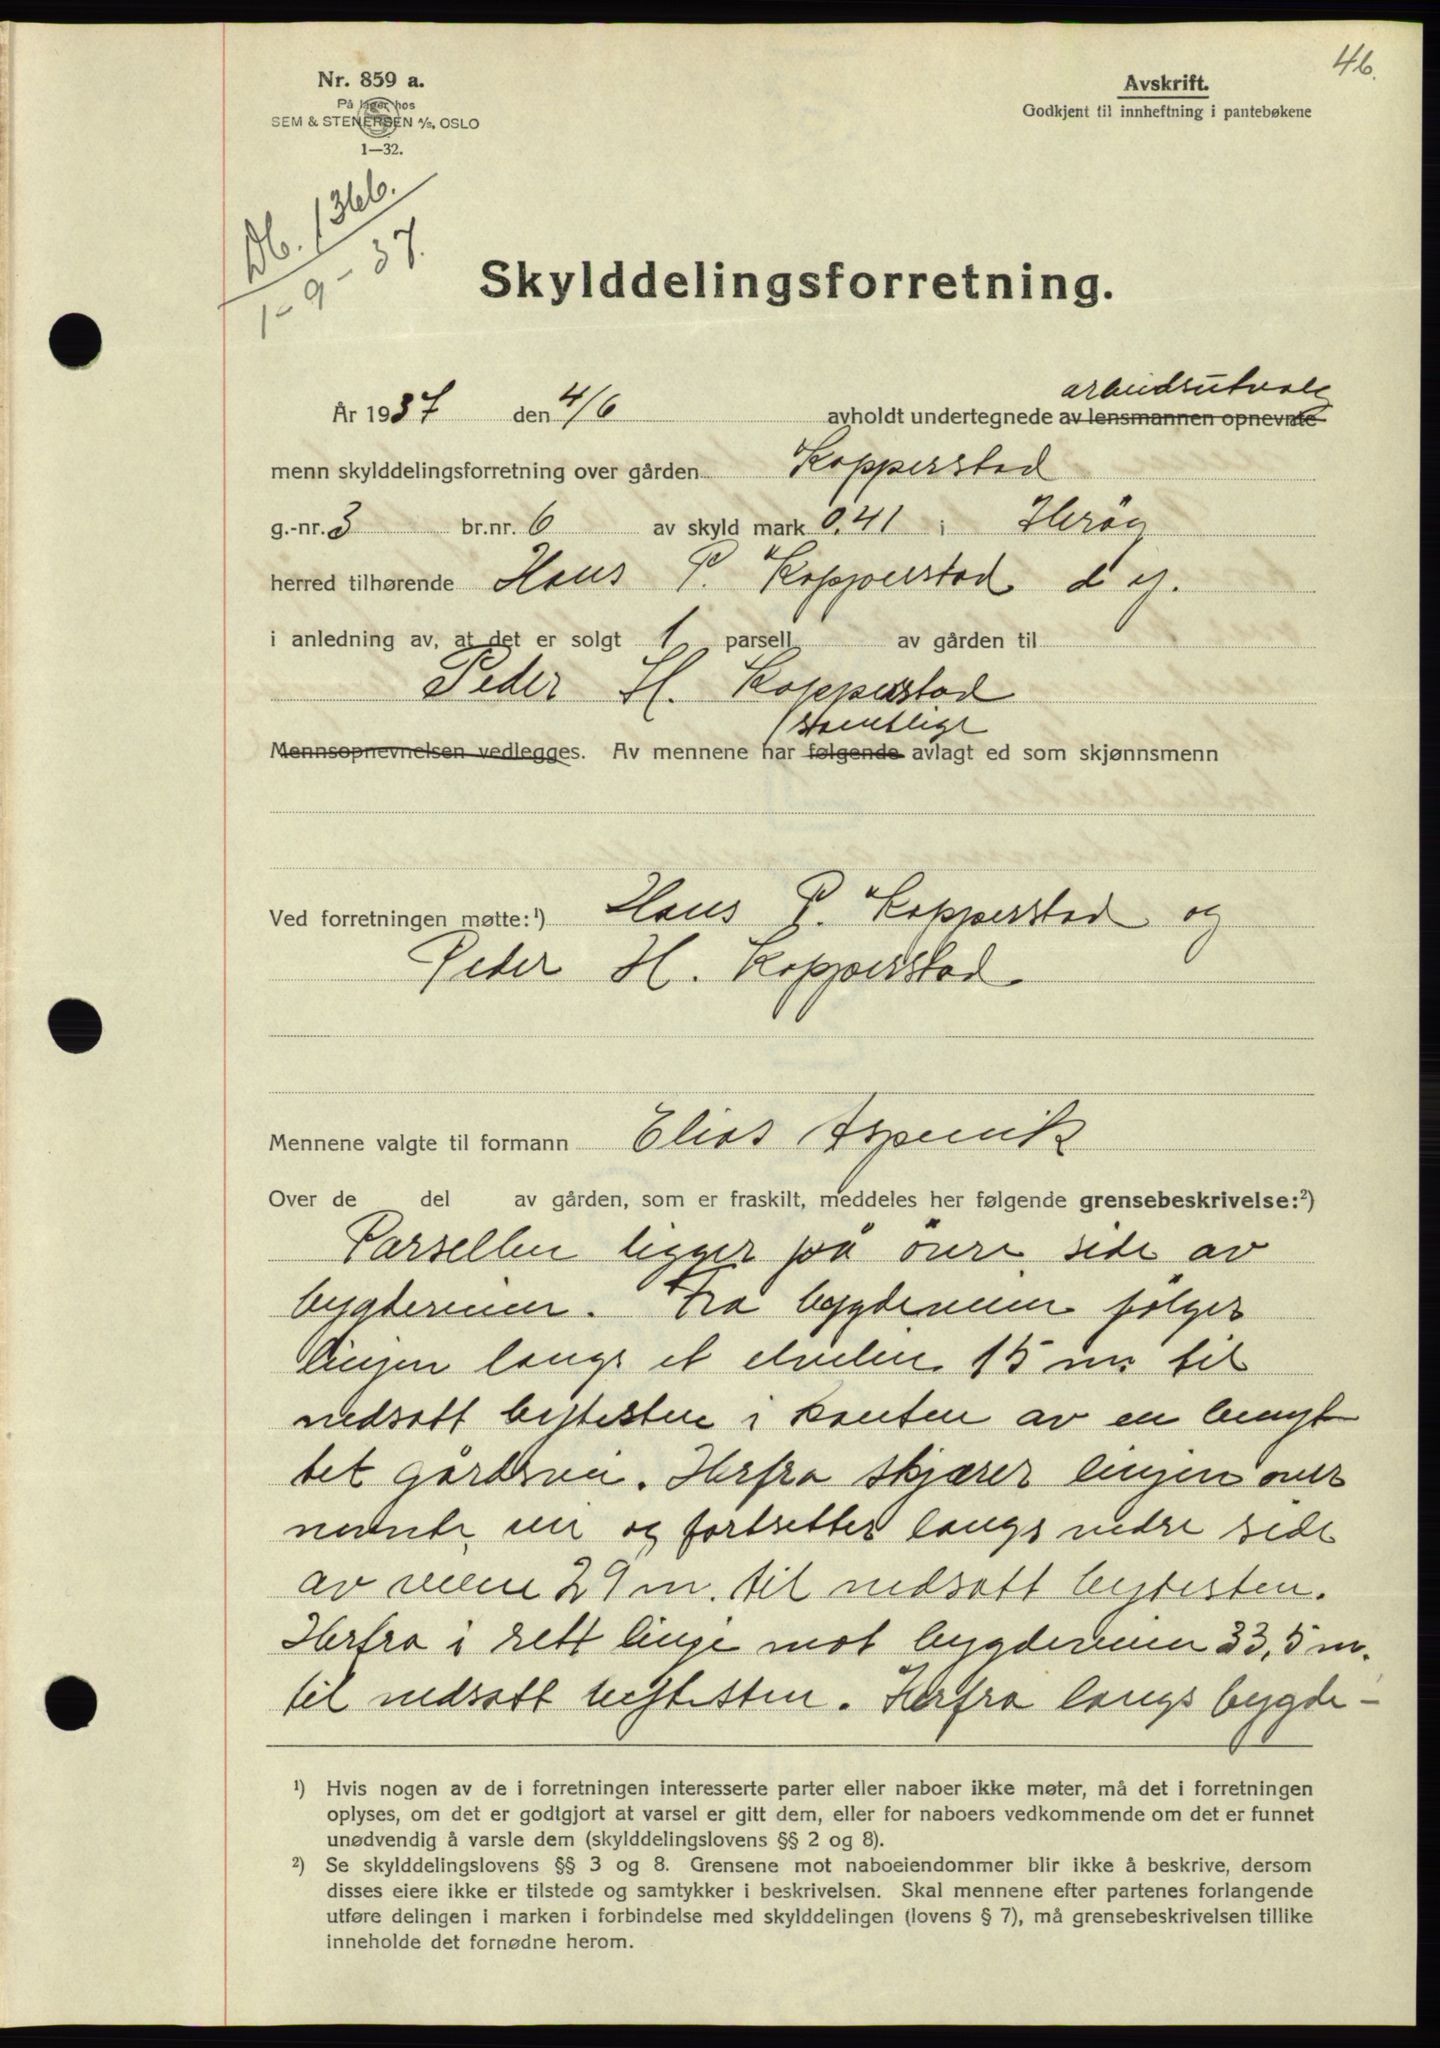 46.
Nr. 859 a.
På lager hos
SEM & STENERSEN A/S, OSLO
1—32.
Avskrift.
Godkjent til innheftning i pantebøkene
Db. 1366.
1-9-37.
Skylddelingsforretning.
arbeidsutvalg
År 1937 den 4/6 avholdt undertegnede av lensmannen opnevnte
menn skylddelingsforretning over gården Kopperstad
g.-nr. 3 br.nr. 6 av skyld mark 0,41 i Herøy
herred tilhørende Hans P. Kopperstad d y.
i anledning av, at det er solgt 1 parsell av gården til
Peder H. Kopperstad
samtlige
Mennsopnevnelsen vedlegges. Av mennene har følgende avlagt ed som skjønnsmenn
Ved forretningen møtte:¹) Hans P. Kopperstad og
Peder H. Kopperstad.
Mennene valgte til formann Elias Aspevik
Over de del av gården, som er fraskilt, meddeles her følgende grensebeskrivelse:²)
Parsellen ligger på övre side av
bygdeveien. Fra bygdeveien følger
linjen langs et elveleie 15 m. til
nedsatt bytesten i kanten av en benyt-
tet gårdsvei. Herfra skjærer linjen over
nevnte vei og fortsetter langs nedre side
av veien 29 m. til nedsatt bytesten.
Herfra i rett linje mot bygdeveien 33,5 m.
til nedsatt bytesten. Herfra langs bygde-
¹) Hvis nogen av de i forretningen interesserte parter eller naboer ikke møter, må det i forretningen
oplyses, om det er godtgjort at varsel er gitt dem, eller for naboers vedkommende om det er funnet
unødvendig å varsle dem (skylddelingslovens §§ 2 og 8).
²) Se skylddelingslovens §§ 3 og 8. Grensene mot naboeiendommer blir ikke å beskrive, dersom
disses eiere ikke er tilstede og samtykker i beskrivelsen. Skal mennene efter partenes forlangende
utføre delingen i marken i forbindelse med skylddelingen (lovens § 7), må grensebeskrivelsen tillike
inneholde det fornødne herom.